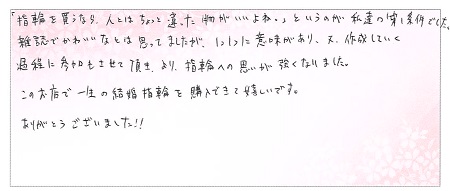 「指輪を買うなら、人とはちょっと違った物がいいよね。」というのが私達の第1条件でした。
雑誌でかわいいなとは思ってましたが、1つ1つに意味があり、又、作成していく
過程に参加もさせて頂き、より、指輪への思いが強くなりました。
このお店で一生の結婚指輪を購入できて嬉しいです。
ありがとうございました!!